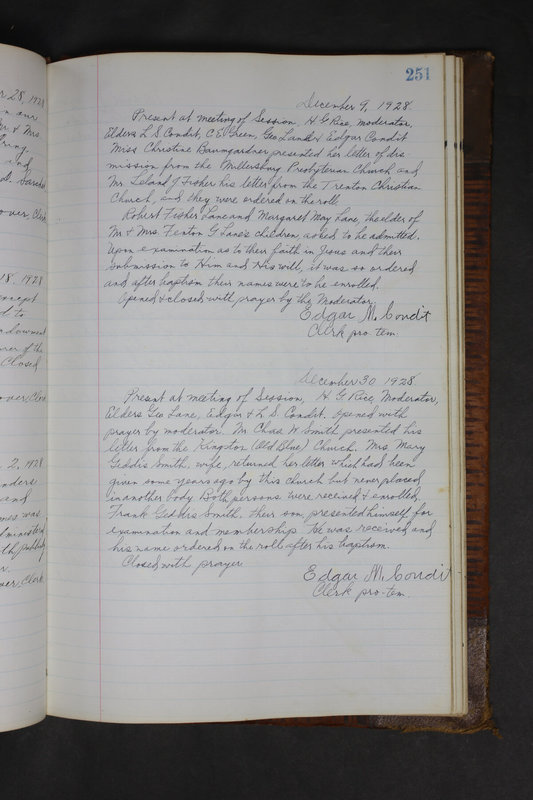 251
December 9, 1928
Present at meeting of Session, H G Rice, moderator,
Elders L S Condit, C E Green, Geo Lane & Edgar Condit
Miss Christine Baumgardner presented her letter of dis-
mission from the Millersburg Presbyterian Church and
Mr. Leland J Fisher his letter from the Trenton Christian
Church, and they were ordered on the roll
Robert Fisher Lane and Margaret May Lane, the older of
Mr & Mrs. Fenton G Lane's children, asked to be admitted.
Upon examination as to their faith in Jesus and their
submission to Him and His will, it was so ordered
and after baptism their names were to be enrolled.
Opened & closed with prayer by the Moderator.
Edgar M. Condit
Clerk pro-tem.
December 30, 1928
Present at meeting of Session, H. G. Rice, Moderator,
Elders Geo Lane, Edgar & L S Condit. Opened with
prayer by moderator. Mr Chas W Smith presented his
letter from the Kingston (Old Blue) Church. Mrs. Mary
Geddis Smith, wife, returned her letter which had been
given some years ago by this church but never placed
in another body. Both persons were received & enrolled.
Frank Geddis Smith, their son, presented himself for
examination and membership. He was received and
his name ordered on the roll after his baptism.
Closed with prayer
Edgar M. Condit
Clerk pro-tem.